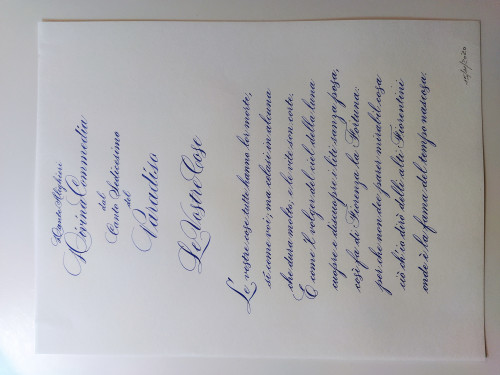 Dante Alighieri
Divina Commedia
dal
Canto Sedicesimo
del
Paradiso
Le Vostre Cose
Le vostre cose tutte hanno lor morte,
sì come voi; ma celasi in alcuna
che dura molto, e le vite son corte.
E come 'l volger del ciel della luna
cuopre e discuopre i liti sanza posa,
così fa di Fiorenza la Fortuna:
per che non dee parer mirabil cosa
ciò ch'io dirò delli alti Fiorentini
onde è la fama del tempo nascosa.